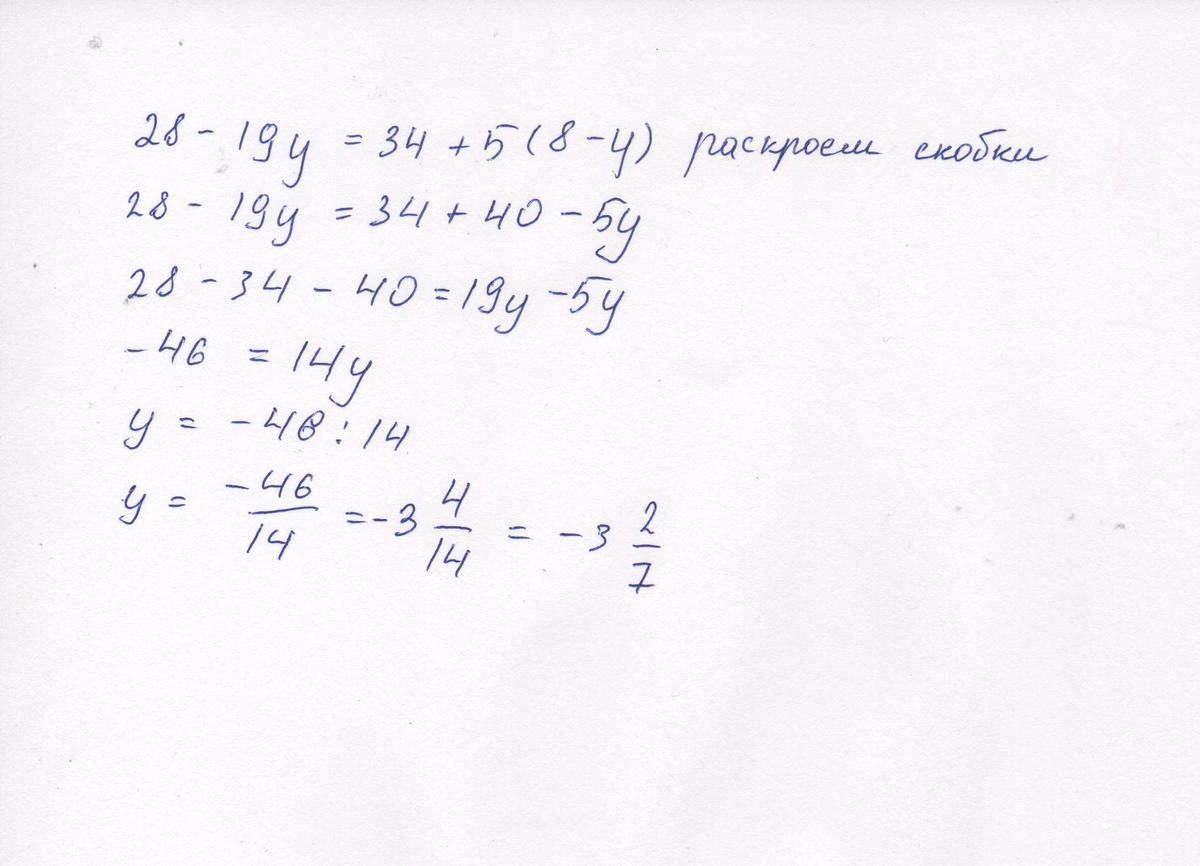 28 - 19y = 34 + 5(8 - y) раскроем скобки
28 - 19y = 34 + 40 - 5y
28 - 34 - 40 = 19y - 5y
-46 = 14y
y = -46 : 14
y = -46/14 = -3 4/14 = -3 2/7